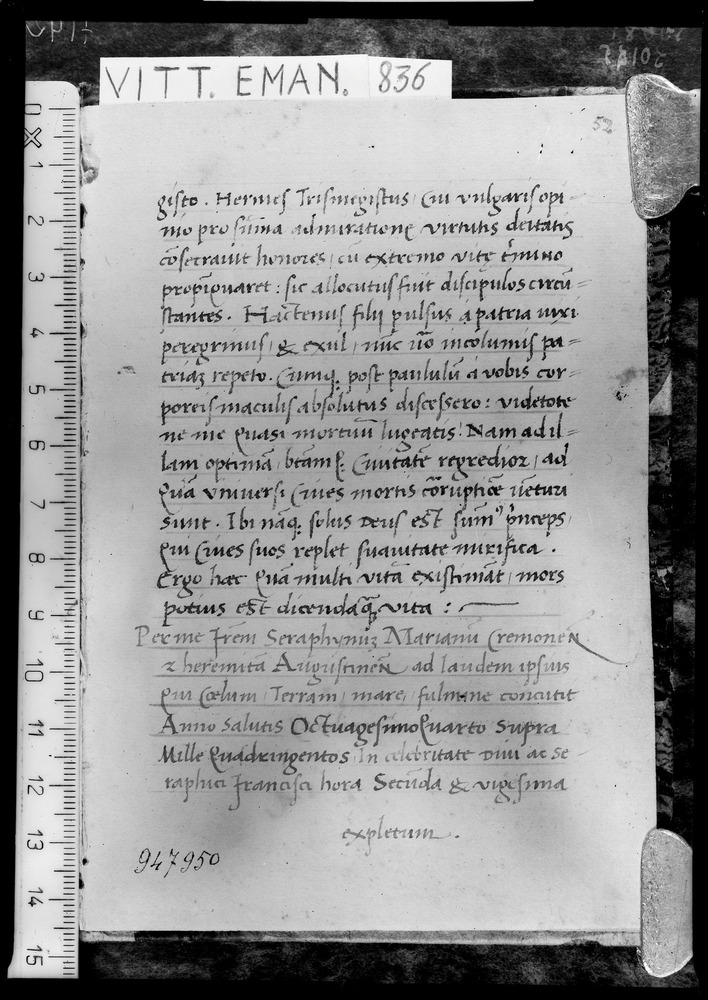 VITT. EMAN. 836
52
gisto. Hermes Trismegistus, Cui vulgaris opi=
nio pro sũma admiratione virtutis deitatis
cõsecravit honores, cũ extremo vite t̃mino
propĩquaret: sic allocutus fuit discipulos circũ=
stantes. Hactenus filij pulsus a patria vixi
peregrinus, & exul, nũc ũo incolumis pa=
triaz repeto. Cumq. post paululũ a vobis cor=
poreis maculis absolutus discessero: videtote
ne me Quasi mortuũ lugeatis. Nam ad il=
lam optimã, btamq. Civitate regredior, ad
Quã Universi Cives mortis corruptiõe ũeturi
sunt. Ibi nãq. solus Deus est sum⁹ p̃nceps,
Qui Cives suos replet suavitate mirifica.
Ergo hæc Quã multi vitã existimãt, mors
potius est dicenda q̃ vita:
Per me Frẽm Seraphynuz Marianũ Cremoneñ
z heremitã Augustineñ ad laudem ipsius
Qui Cœlum, Terram, mare, fulmine concutit
Anno Salutis Octuagesimo Quarto Supra
Mille Quadringentos, In celebritate Divi ac Se=
raphici Francisci hora Secũda & vigesima
expletum.
947950
0 1 2 3 4 5 6 7 8 9 10 11 12 13 14 15